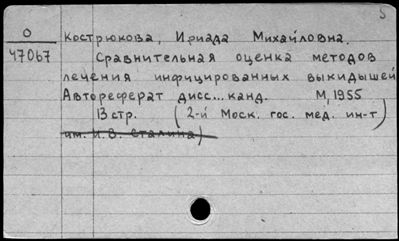 5
О
47067
Кострюкова, Ириада Михайловна.
Сравнительная оценка методов
лечения инфицированных выкидышей
Автореферат дисс...канд. М, 1955
13 стр. (2-й Моск. гос. мед. ин-т
им. И.В. Сталина)